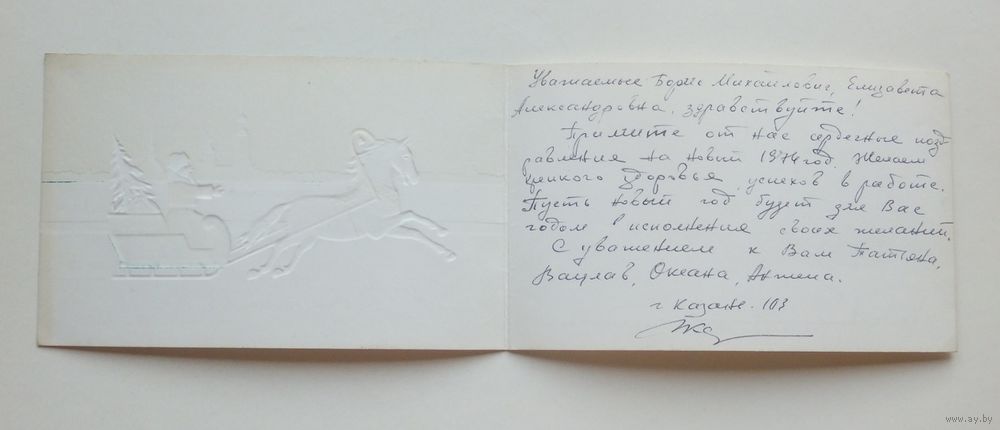 Уважаемые Борис Михайлович, Елизавета
Александровна, здравствуйте!
Примите от нас сердечные позд
равления на новый 1974 год. Желаем
крепкого здоровья, успехов в работе.
Пусть новый год будет для Вас
годом исполнения своих желаний.
С уважением к Вам Татьяна,
Вацлав, Оксана, Анжела.
г Казань. 103
www.ay.by